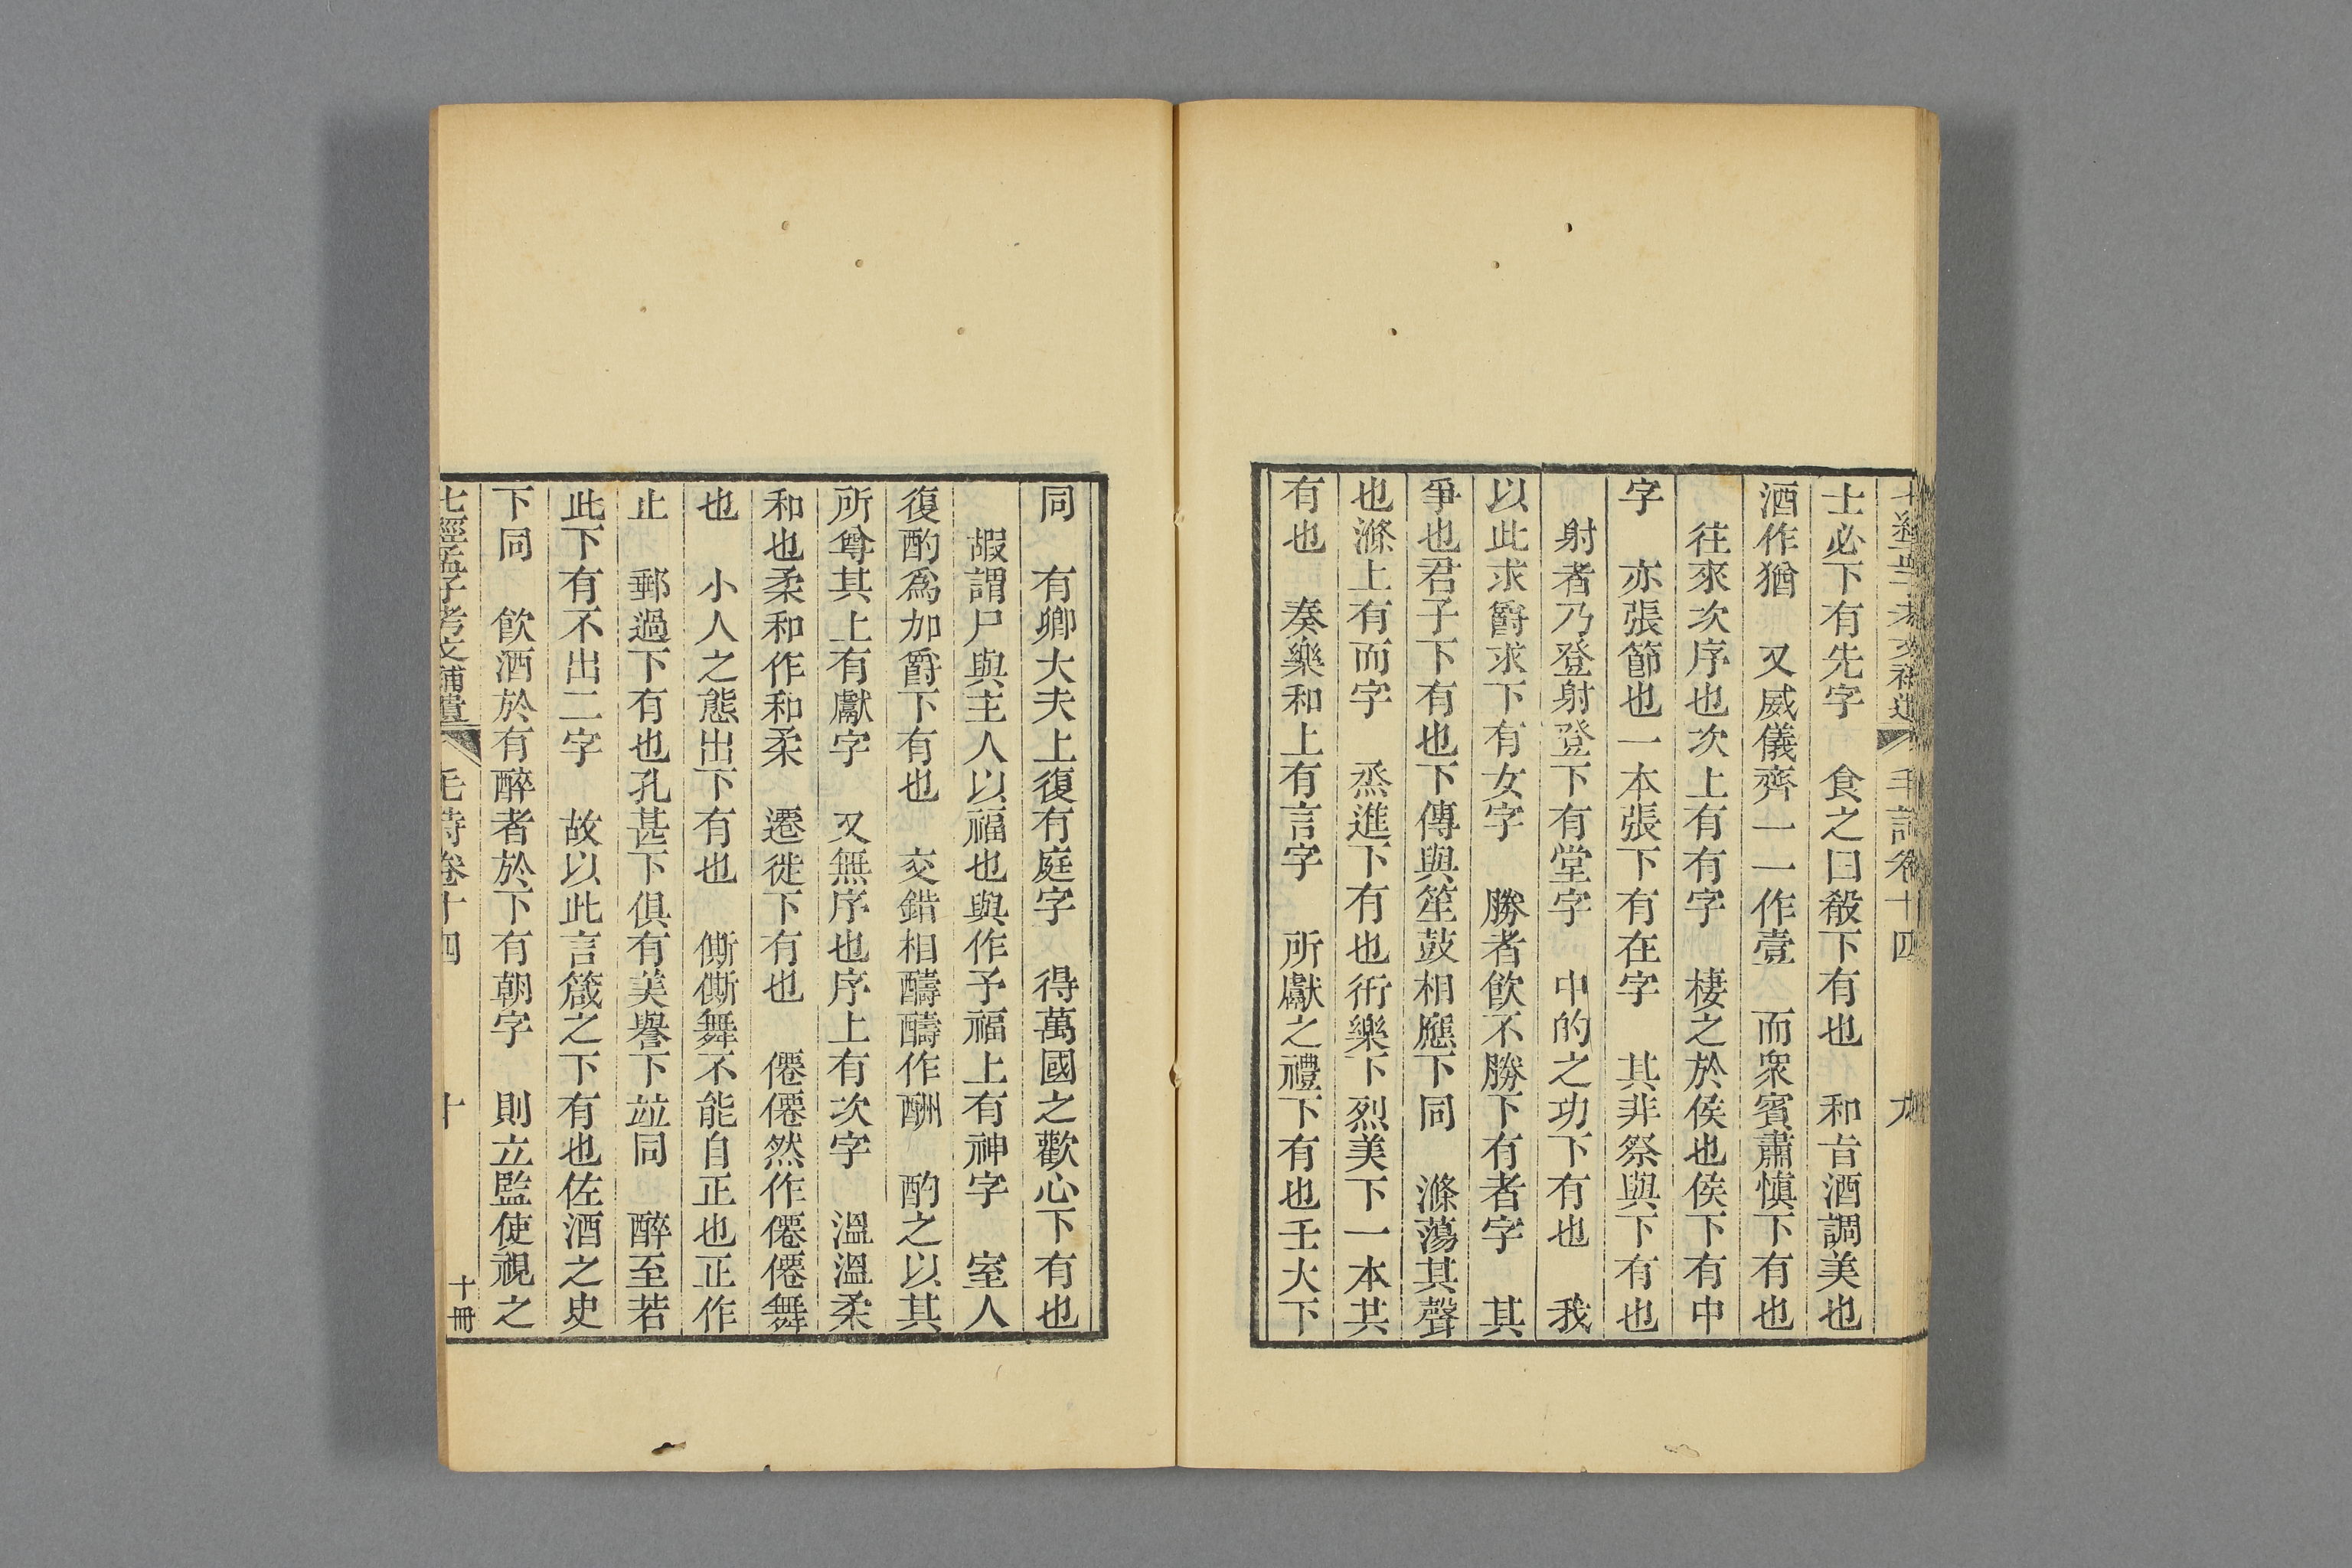 七經孟子考文補遺 毛詩卷十四 九
士必下有先字 食之曰殽下有也 和旨酒調美也
酒作猶 又威儀齊一一作壹 而衆賓肅慎下有也
往來次序也次上有有字 棲之於侯也侯下有中
字 亦張節也一本張下有在字 其非祭與下有也
射者乃登射登下有堂字 中的之功下有也 我
以此求爵求下有女字 勝者飮不勝下有者字 其
爭也君子下有也下傳與笙鼓相應下同 滌蕩其聲
也滌上有而字 烝進下有也衎樂下烈美下一本共
有也 奏樂和上有言字 所獻之禮下有也壬大下
同 有卿大夫上復有庭字 得萬國之歡心下有也
嘏謂尸與主人以福也與作予福上有神字 室人
復酌爲加爵下有也 交錯相醻醻作酬 酌之以其
所尊其上有獻字 又無序也序上有次字 溫溫柔
和也柔和作和柔 遷徙下有也 僊僊然作僊僊舞
也 小人之態出下有也 傞傞舞不能自正也正作
止 郵過下有也孔甚下俱有美譽下竝同 醉至若
此下有不出二字 故以此言箴之下有也佐酒之史
下同 飮酒於有醉者於下有朝字 則立監使視之
七經孟子考文補遺 毛詩卷十四 十 十冊